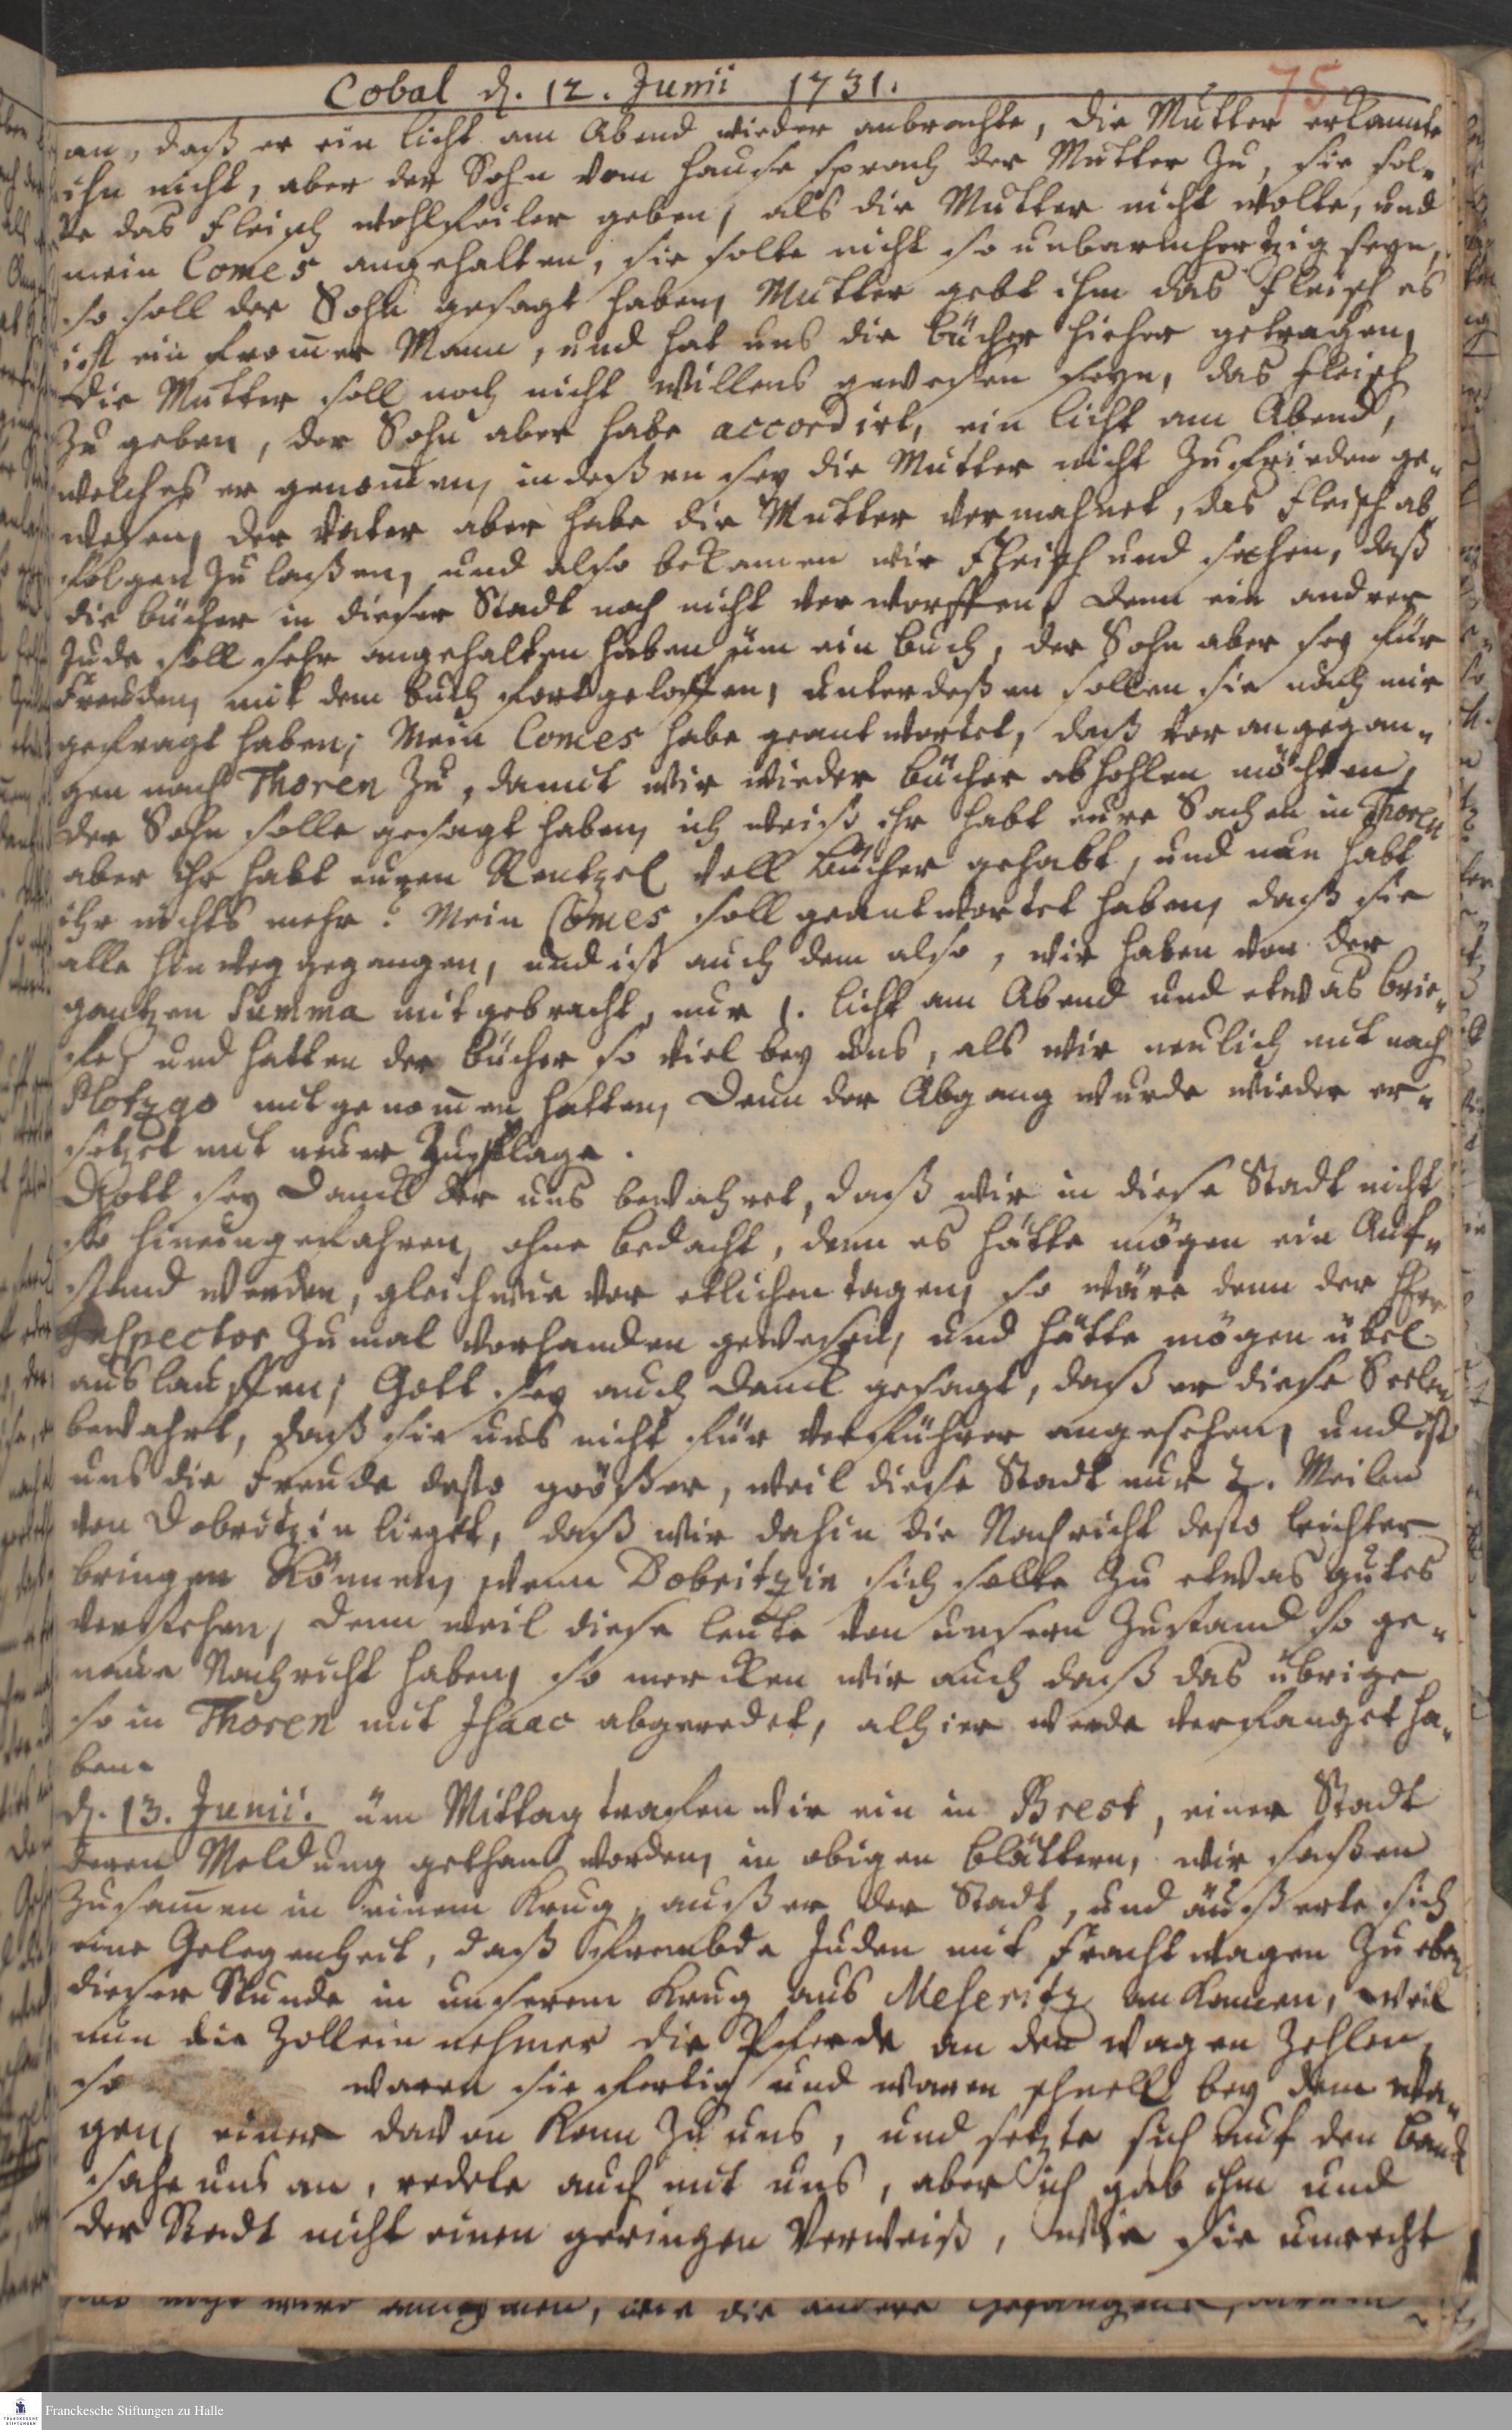 Cobal d. 12. Junii 1731.
75
an, daß er ein licht am Abend wieder anbrachte, die Mutter erkannte
ihn nicht, aber der Sohn vom Hause sprach der Mutter zu, sie sol-
te das Fleisch wohlfeiler geben, als die Mutter nicht wolte, und
mein Comes angehalten, sie solte nicht so unbarmhertzig seyn,
so soll der Sohn gesagt haben, Mutter gebt ihm das Fleisch es
ist ein from̄er Mann, und hat uns die bücher hieher getragen,
Die Mutter soll noch nicht willens gewesen seyn, das Fleisch
zu geben, der Sohn aber habe accordirt, ein licht am Abend,
welches er genom̄en, indeßen sey die Mutter nicht zufrieden ge-
wesen, der Vater aber habe die Mutter vermahnet, das Fleisch ab
folgen zu laßen, und also bekamen wir Fleisch und sehen, daß
die bücher in dieser Stadt noch nicht verworffen, denn ein andrer
Jude soll sehr angehalten haben um ein buch, der Sohn aber sey für
Freuden, mit dem buch fortgeloffen, unterdeßen sollen sie nach mir
gefragt haben; Mein Comes habe geantwortet, daß vorangegan-
gen nach Thoren zu, damit wir wieder bücher abhohlen möchten,
der Sohn solle gesagt haben, ich weiß ihr habt eure Sachen in Thoren
aber ihr habt euren Rentzel voll bücher gehabt, und nun habt
ihr nichts mehr? Mein Comes soll geantwortet haben, daß sie
alle hinweggegangen, und ist auch dem also, wir haben von der
gantzen Summa mitgebracht, nur 1. licht am Abend und etwas brie-
fe, und hatten der bücher so viel bey uns, als wir neulich mit nach
Plotzgo mitgenom̄en hatten, denn der Abgang wurde wieder er-
setzet mit neuer Zuflage.
Gott sey Danck der uns bewahret, daß wir in diese Stadt nicht
so hineingefahren, ohne bedacht, denn es hätte mögen ein Auf-
stand werden, gleichwie vor etlichen tagen, so wäre denn der Herr
Inspector zumal vorhanden gewesen, und hätte mögen übel
auslauffen; Gott sey auch danck gesagt, daß er diese Seelen
bewahrt, daß sie uns nicht für verführer angesehen, und ist
uns die Freude desto größer, weil diese Stadt nur 2. Meilen
von Dobritzin lieget, daß wir dahin die Nachricht desto leichter
bringen können, wenn Dobritzin sich solte zu etwas gutes
verstehen, denn weil diese leute von unsern Zustand so ge-
naue Nachricht haben, so mercken wir auch daß das übrige
so in Thoren mit Isaac abgeredet, alhier werde verfanget ha-
ben.
d. 13. Junii. um Mittag trafen wir ein in Brest, einer Stadt
deren Meldung gethan worden, in obigen blättern, wir saßen
zusam̄en in einem Krug, außer der Stadt, und äußerte sich
eine Gelegenheit, daß frembde Juden mit Fracht wagen zu eben
dieser Stunde in unserem Krug aus Meseritz ankamen, weil
nun die Zolleinnehmer die Pferde an den wagen zehlen,
so waren sie fertig und waren schnell bey dem wa-
gen, einer davon kam zu uns, und setzte sich auf den banck
sahe uns an, redete auch mit uns, aber ich gab ihm und
der Stadt nicht einen geringen Verweiß, wie sie unrecht